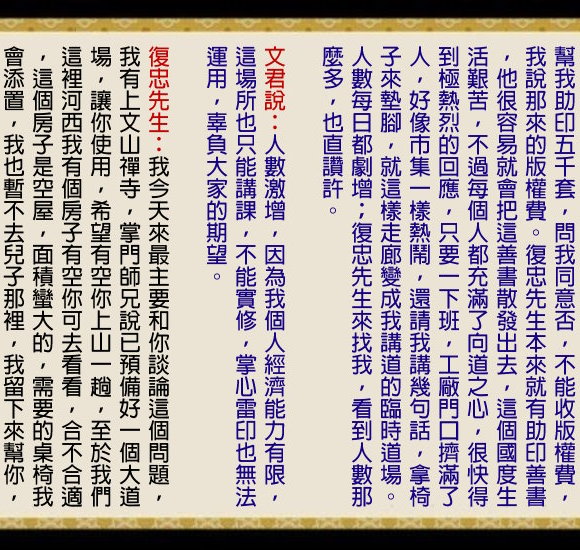 幫我助印五千套，問我同意否，不能收版權費，
我說那來的版權費。復忠先生本來就有助印善書
，他很容易就會把這善書散發出去，這個國度生
活艱苦，不過每個人都充滿了向道之心，很快得
到極熱烈的回應，只要一下班，工廠門口擠滿了
人，好像市集一樣熱鬧，還請我講幾句話，拿椅
子來墊腳，就這樣走廊變成我講道的臨時道場。
人數每日都劇增；復忠先生來找我，看到人數那
麼多，也直讚許。
文君說：人數激增，因為我個人經濟能力有限，
這場所也只能講課，不能實修，掌心雷印也無法
運用，辜負大家的期望。
復忠先生：我今天來最主要和你談論這個問題，
我有上文山禪寺，掌門師兄說已預備好一個大道
場，讓你使用，希望有空你上山一趟，至於我們
這裡河西我有個房子有空你可去看看，合不合適
，這個房子是空屋，面積蠻大的，需要的桌椅我
會添置，我也暫不去兒子那裡，我留下來幫你，